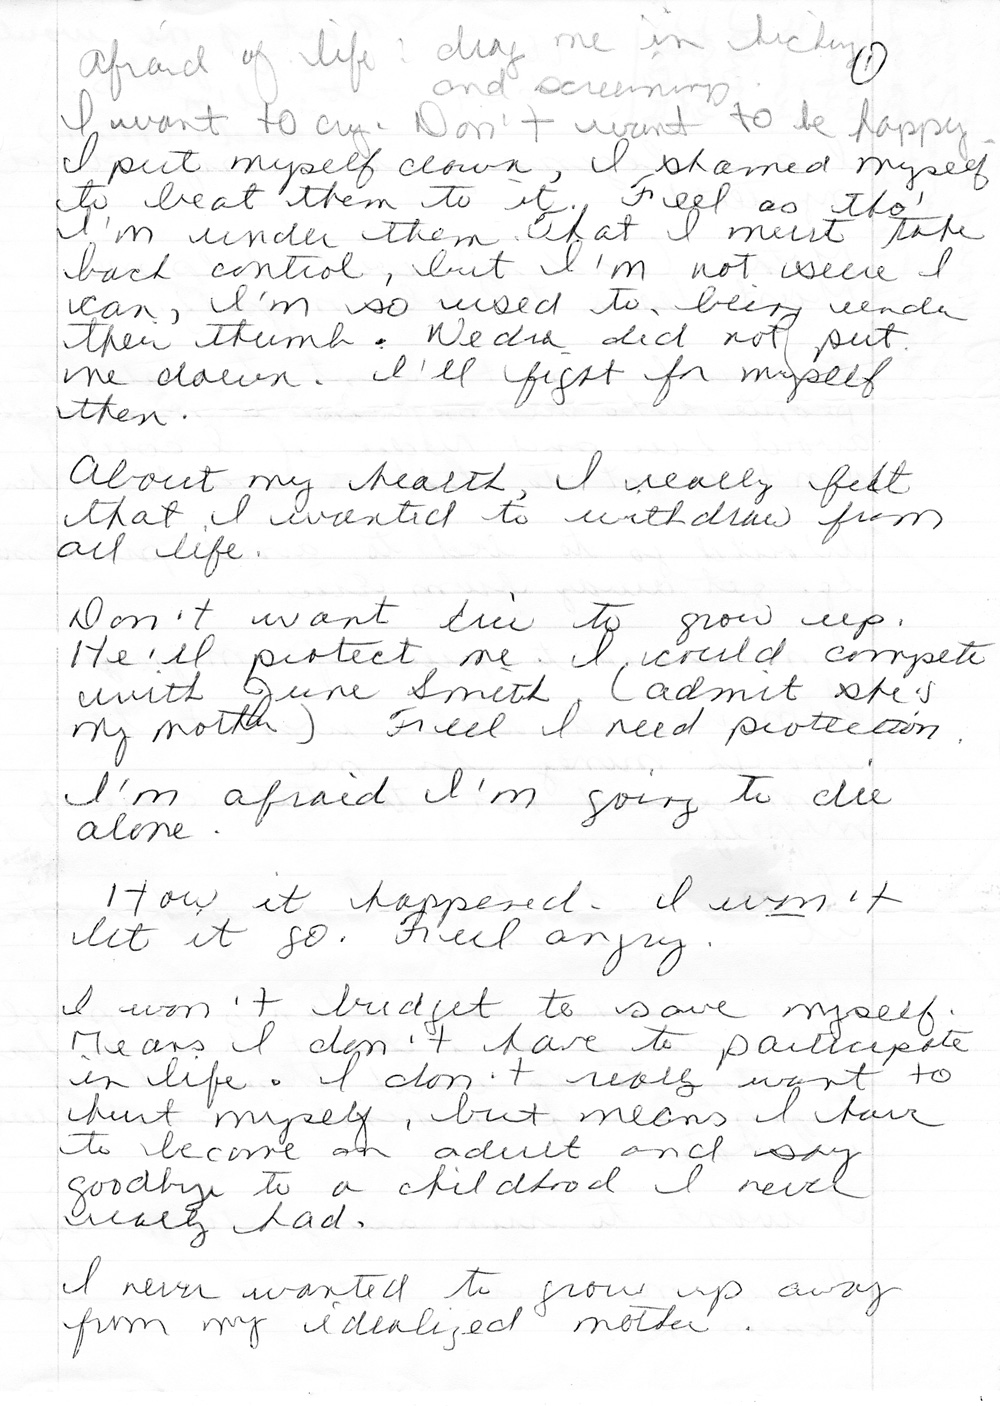 Afraid of life : drag me in kicking ①
and screaming.
I want to cry. Don't want to be happy.
I put myself down, I shamed myself
to beat them to it. Feel as tho'
I'm under them that I must take
back control, but I'm not sure I
can, I'm so used to being under
their thumb. did not put
me down. I'll fight for myself
then.
About my health, I really felt
that I wanted to withdraw from
all life.
Don't want to grow up.
He'll protect me. I could compete
with June Smith, (admit she's
my mother) Feel I need protection.
I'm afraid I'm going to die
alone.
How it happened. I won't
let it go. Feel angry.
I won't budget to save myself.
Means I don't have to participate
in life. I don't really want to
hurt myself, but means I have
to become an adult and say
goodbye to a childhood I never
really had.
I never wanted to grow up away
from my idealized mother.